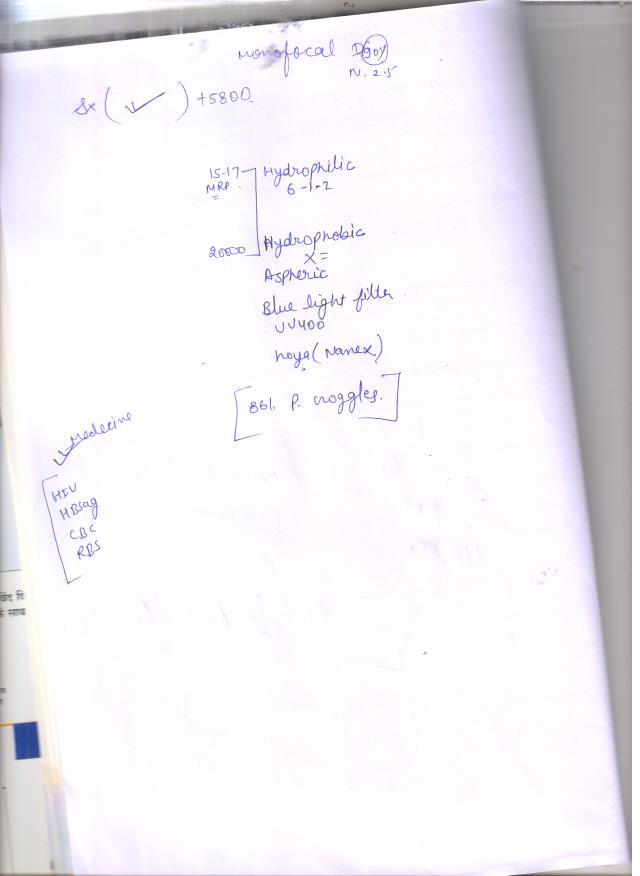 Monofocal D 90%
N. 2.5
Sx ( ✓ ) +5800
15-17 Hydrophilic
MRP 6-1-2
20000 Hydrophobic
X =
Aspheric
Blue light filter
UV400
hoya (Nanex)
P. Goggles.
✓ Medecine
HIV
HBsag
CBC
RBS
के साथ